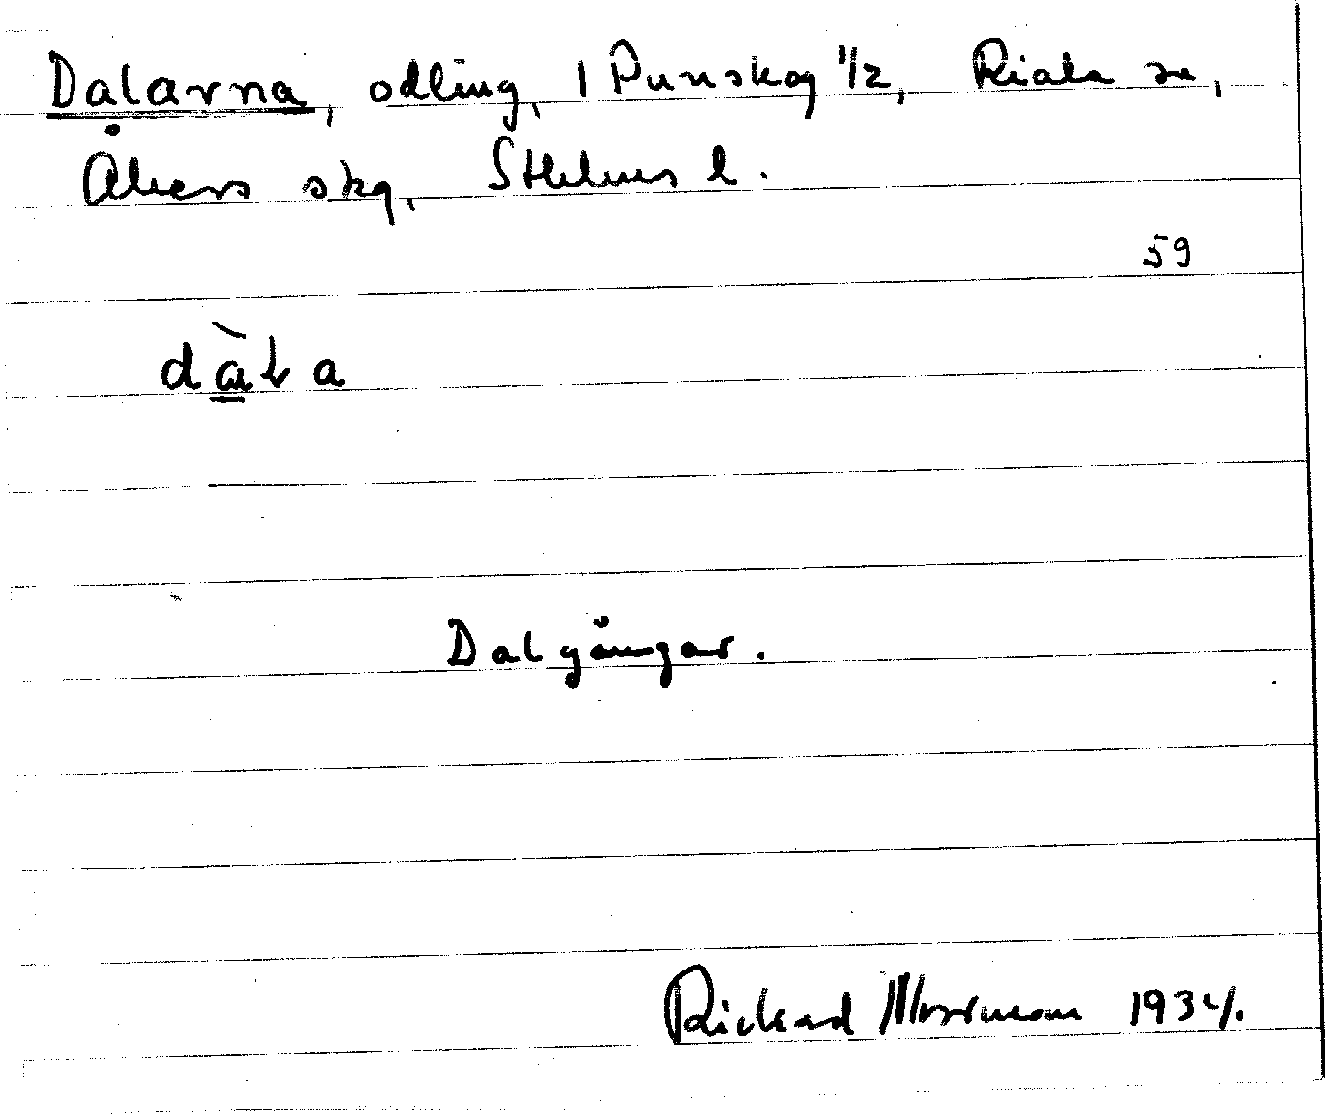 Dalarna, odling, 1 Punskog 1/2, Riala sn,
Åkers skg, Sthlms l.
59
dàla
Dalgångar.
Rickard 1934.